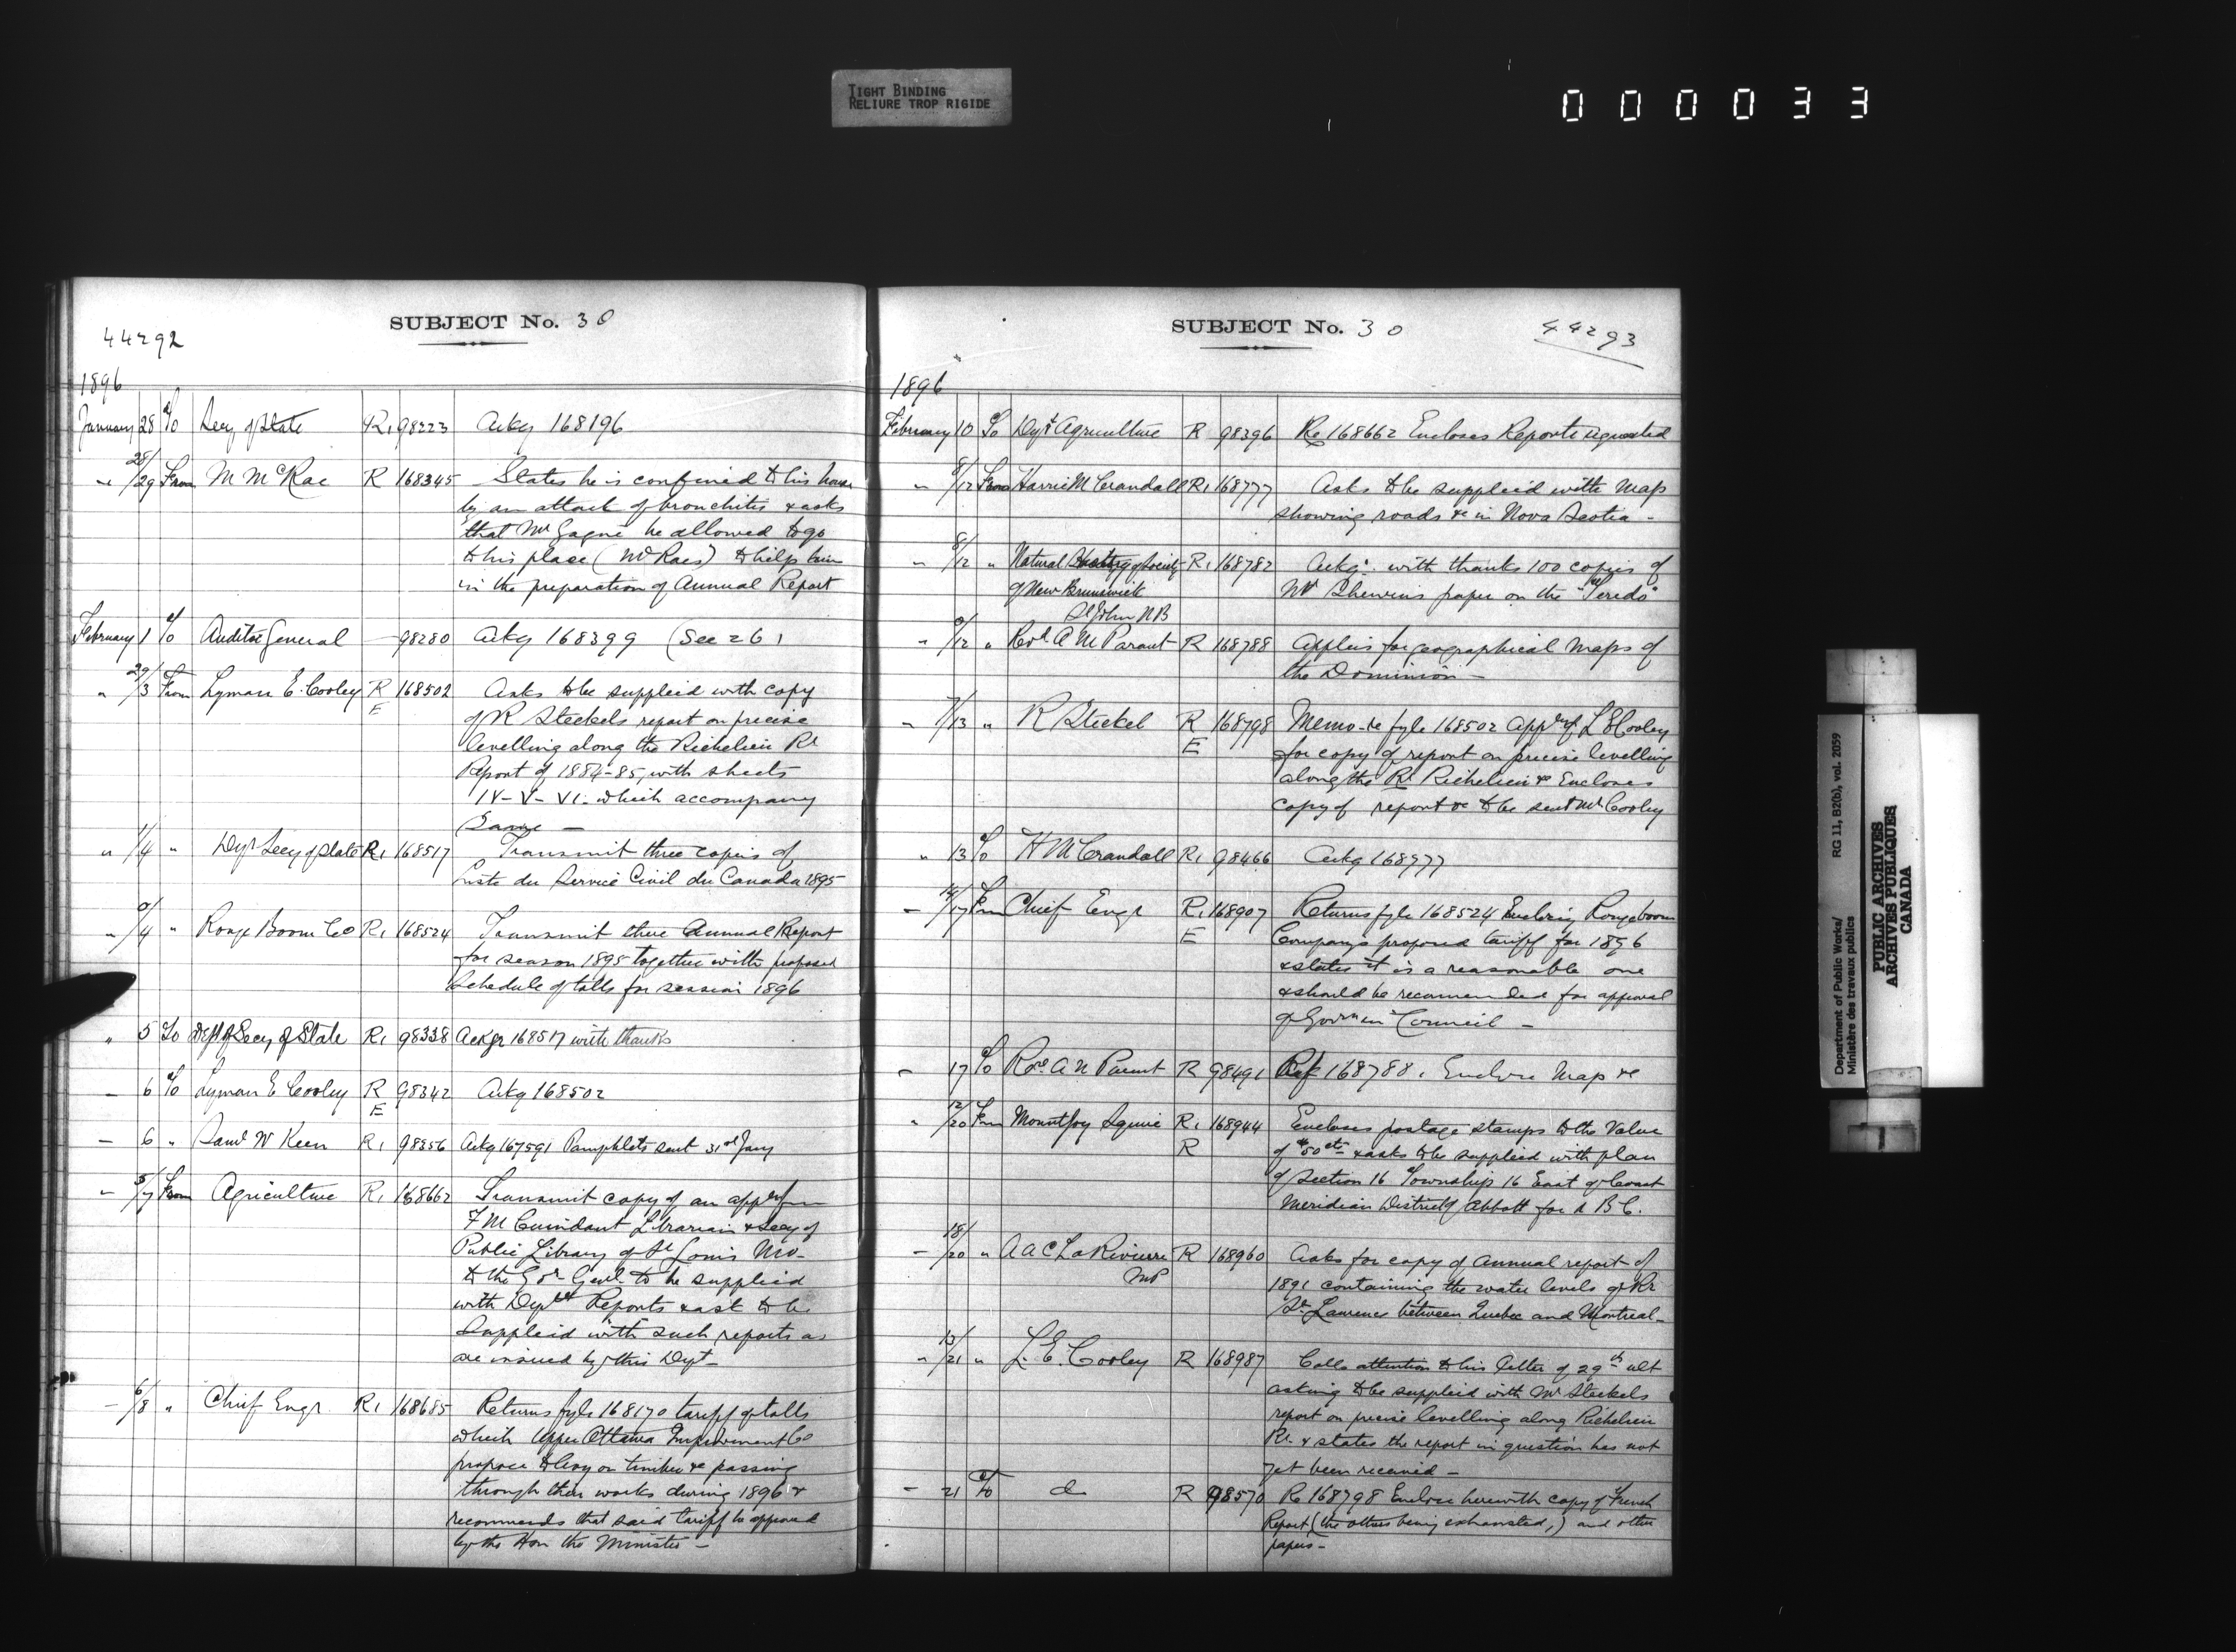 TIGHT BINDING
RELIURE TROP RIGIDE
000033
SUBJECT No. 30
44292
1896
January 28 To Secy of State R1 98223 Ackg 168196
" 28/29 From M McRae R 168345 States he is confined to his house
by an attack of bronchitis & asks
that Mr Gagné be allowed to go
to his place (McRaes) to help him
in the preparation of Annual Report
February 1 To Auditor General — 98280 Ackg 168399 (See 26)
" 29/3 From Lyman E. Cooley R 168502 Asks to be supplied with copy
E of R Steckels report on precise
levelling along the Richelieu Rr
Report of 1884-85, with sheets
IV - V - VI. which accompany
Same —
" 1/4 " Dept Secy of State R1 168517 Transmit three copies of
Liste du Service Civil du Canada 1895
" 4 " Rouge Boom Co R1 168524 Transmit three Annual Report
for season 1895 together with proposed
Schedule of tolls for session 1896
" 5 To Dept of Secy of State R1 98338 Ackgs 168517 with thanks
— 6 To Lyman E Cooley R 98342 Ackg 168502
E
— 6 " Saml W Keen R1 98356 Ackg 167591 Pamphlets sent 31st Jany
— 5/7 From Agriculture R1 168662 Transmit copy of an appln from
F M Librarian & Secy of
Public Library of St Louis Mo-
to the Gor Genl to be supplied
with Deptl Reports & ask to be
Supplied with such reports as
are issued by this Dept-
— 6/8 " Chief Engr R1 168685 Returns fyle 168170 tariff of tolls
which Upper Ottawa Improvement Co
propose to levy on timber &c passing
through their works during 1896 &
recommends that said tariff be approved
by the Hon the Minister —
SUBJECT No. 30
44293
1896
February 10 To Dept Agriculture R 98396 Re 168662 Encloses Reports requested
" 8/12 From Harrie M Crandall R1 168777 Asks to be supplied with map
showing roads &c in Nova Scotia -
" 8/12 " Natural History of Society R1 168787 Ackgs. with thanks 100 copies of
of New Brunswick Mr Shewins paper on the "Teredo"
St John NB
" 12 " Revd A M Parant R 168788 Applies for geographical maps of
the Dominion —
" 7/13 " R Steckel R 168798 Memo-re fyle 168502 Appln of L E Cooley
E for copy of report on precise levelling
along the Rr Richelieu &c Encloses
copy of report &c to be sent Mr Cooley
" 13 To H M Crandall R1 98466 Ackg 168777
— 14/17 From Chief Engr R1 168907 Returns fyle 168524 Enclosing Rouge boom
E Companys proposed tariff for 1896
& states it is a reasonable one
& should be recommended for approval
of Govr in Council —
— 17 To Revd A N Parent R 98491 Ref 168788. Enclose Map &c
" 12/20 From Mountjoy Squire R1 168944 Encloses postage stamps to the Value
R of 50 cts & asks to be supplied with plan
of section 16 Township 16 East of Coast
Meridian District of Abbott for d B C.
— 18/20 " A A C La Riviere R 168960 Asks for copy of Annual report of
MP 1891 containing the water levels of Rr
St Lawrence between Quebec and Montreal-
" 13/21 " L. E. Cooley R 168987 Calls attention to his letter of 29th ult
asking to be supplied with Mr Steckels
report on precise levelling along Richelieu
Rr & states the report in question has not
yet been received —
— 21 To do R 98570 Re 168798 Enclose herewith copy of French
Report (the others being exhausted,) and other
papers —
Department of Public Works/ RG 11, B2(b), vol. 2059
Ministère des travaux publics
PUBLIC ARCHIVES
ARCHIVES PUBLIQUES
CANADA